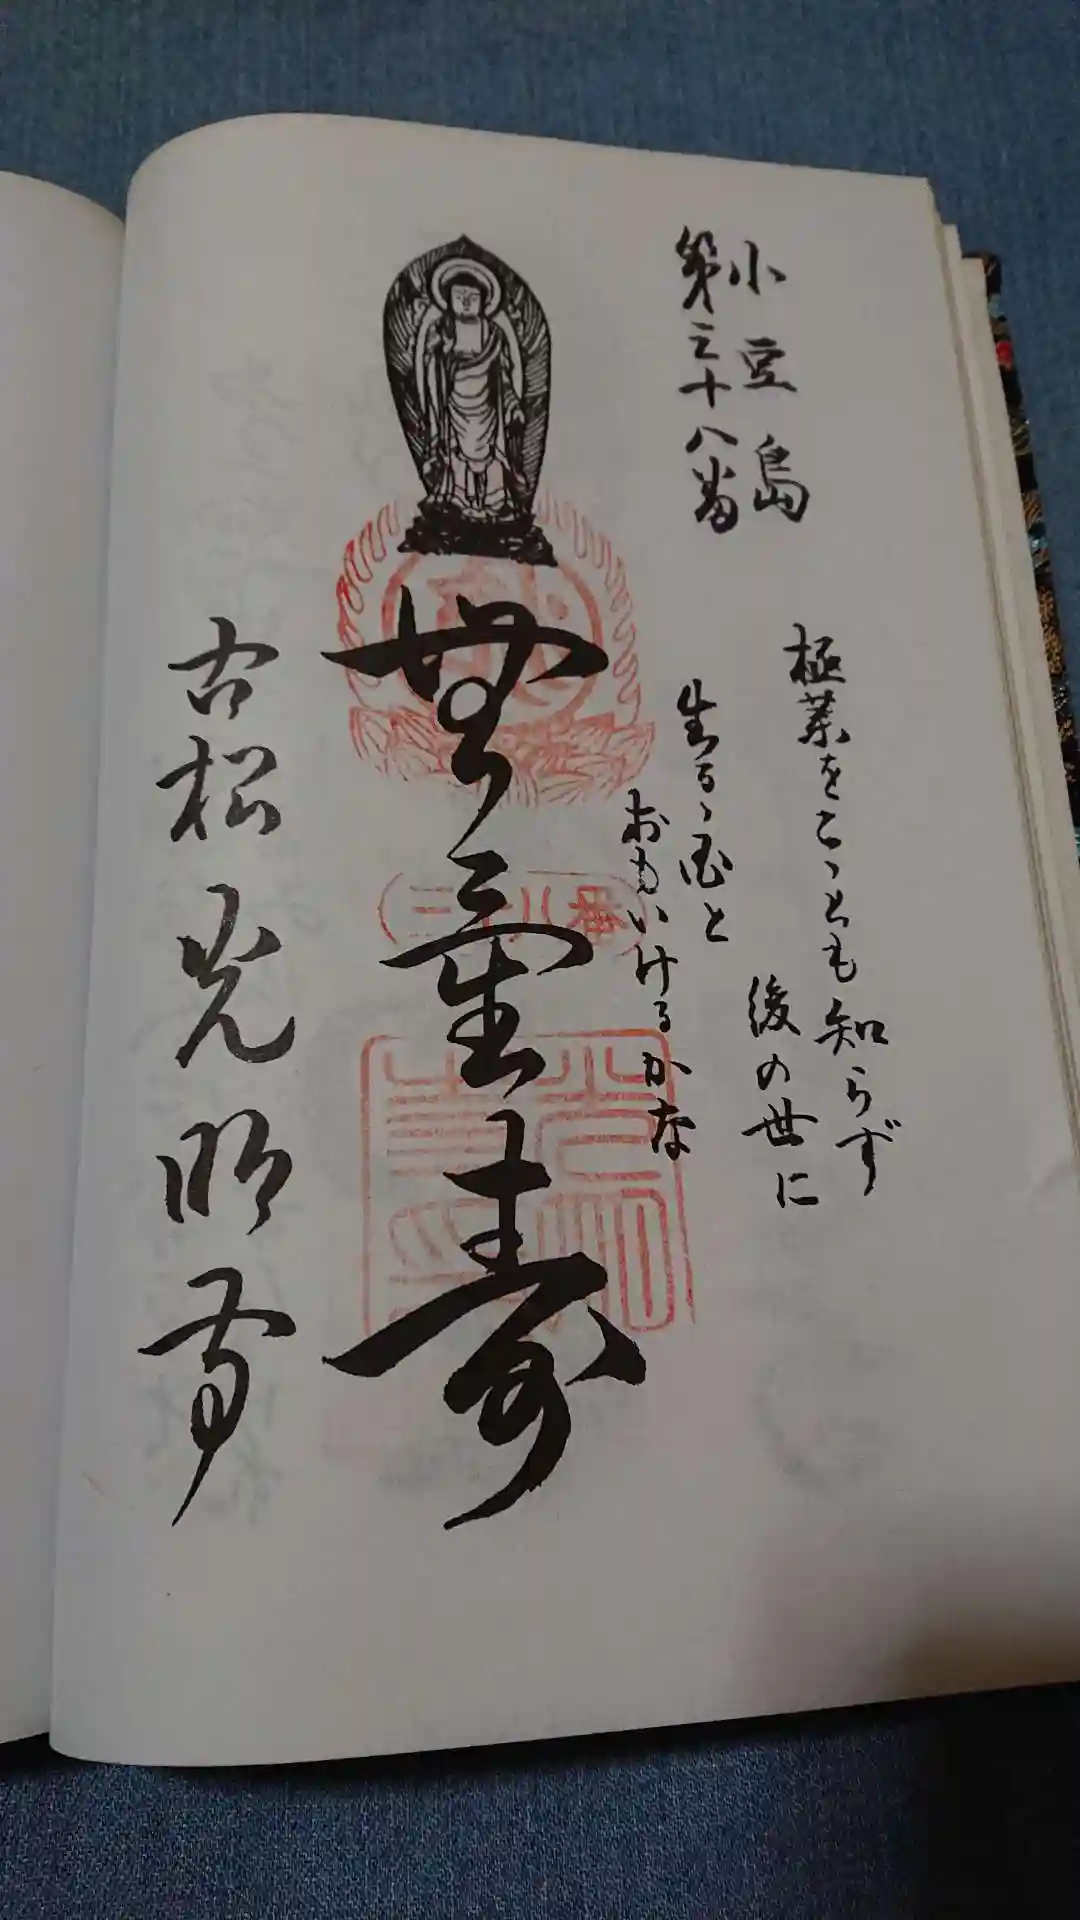 小豆島
第三十八番
極楽をこゝとも知らず
後の世に
生るゝ国と
おもいけるかな
無量寿
三八十
古松光明寺